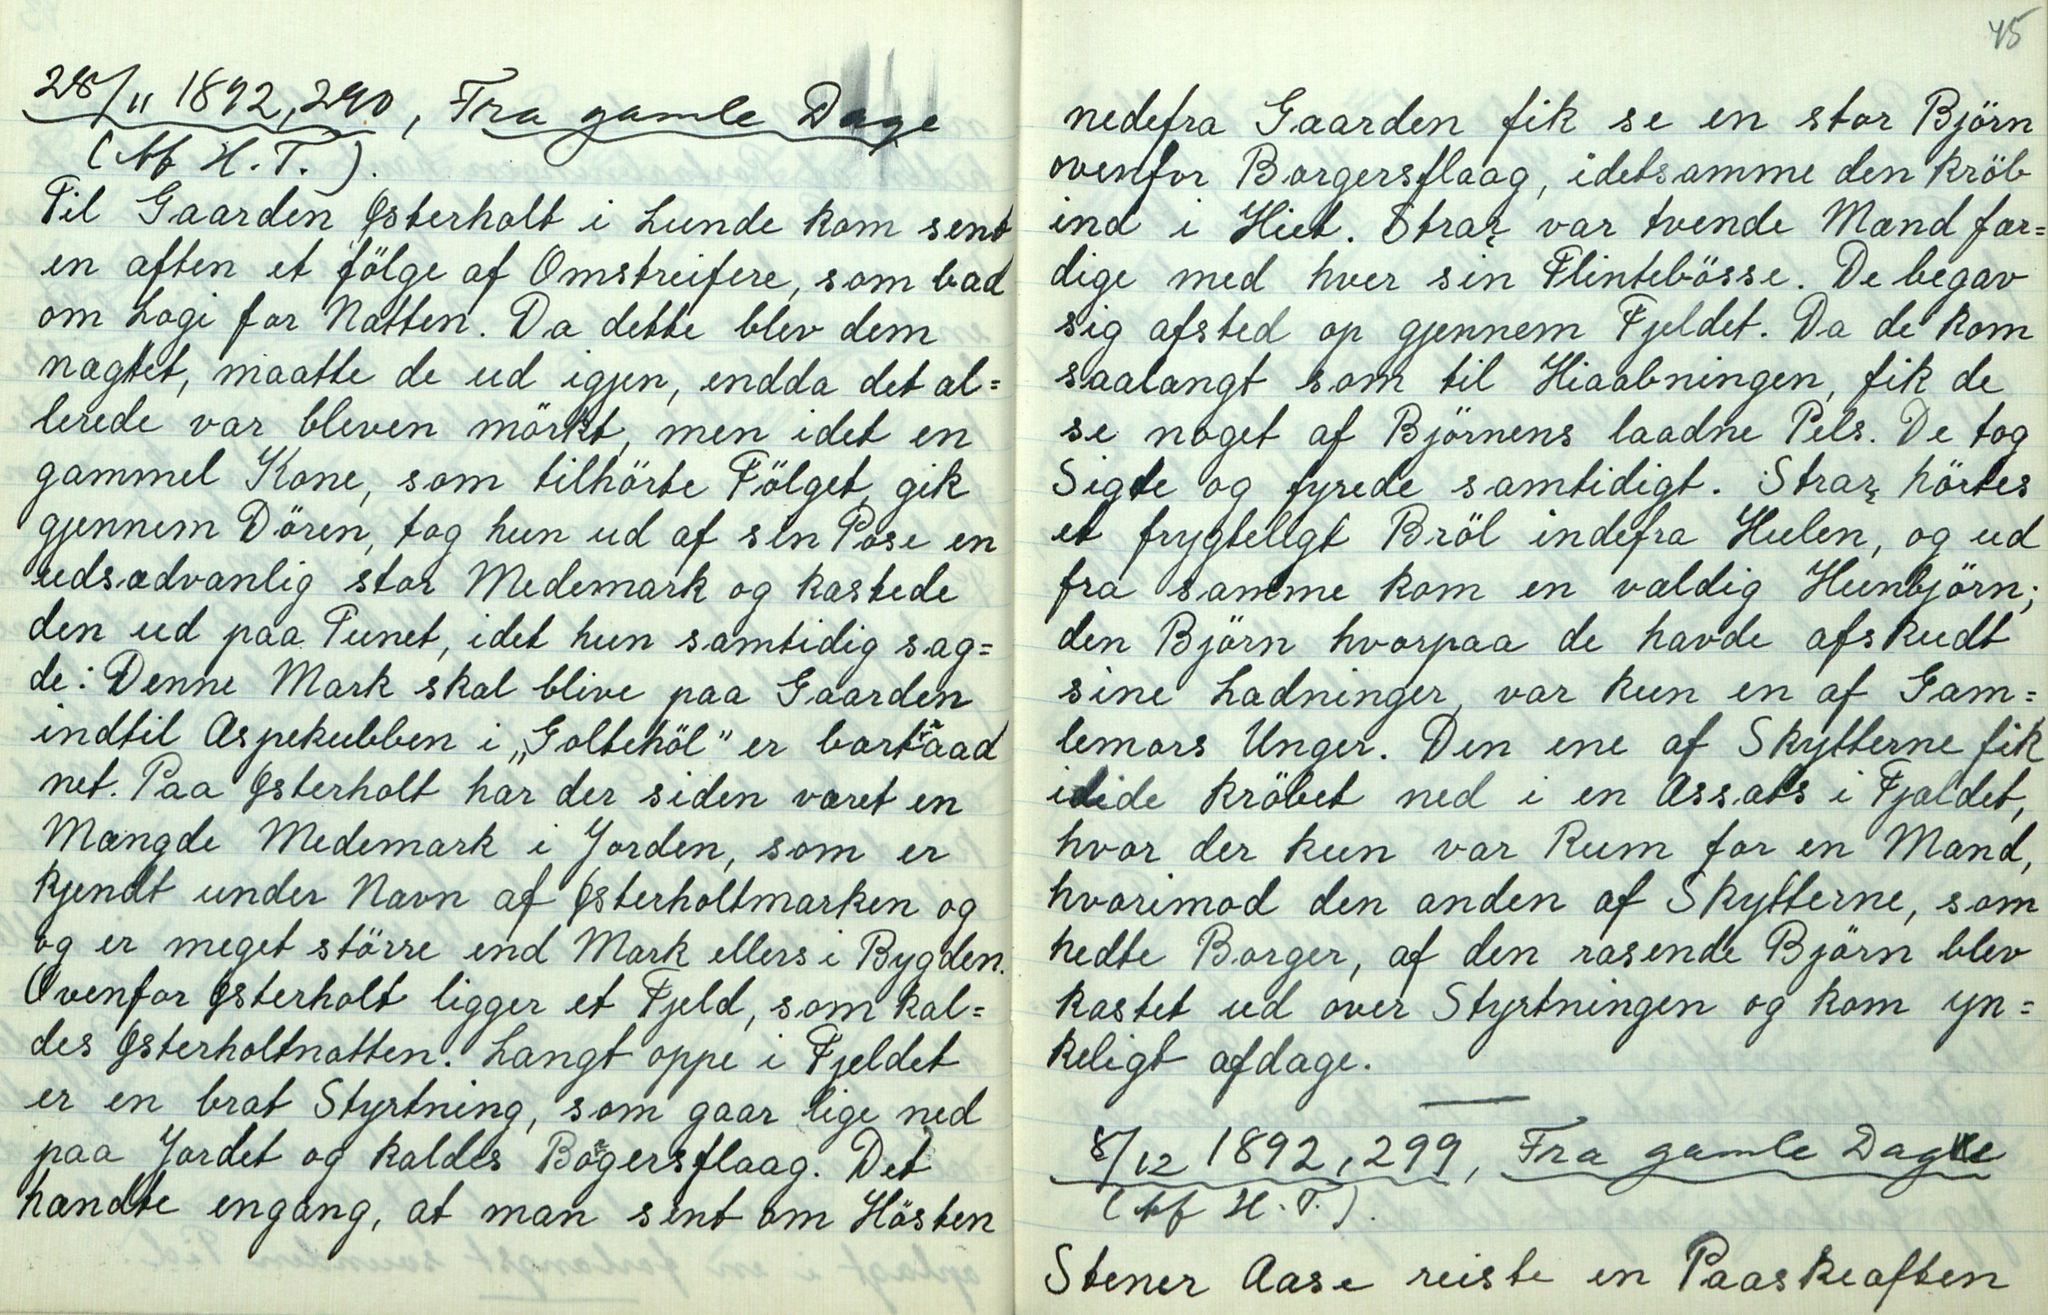 28/11 1892, 290, Fra gamle Dage
(Af H. T.).
Til Gaarden Østerholt i Lunde kom sent
en aften et fölge af Omstreifere, som bad
om Logi for Natten. Da dette blev dem
nægtet, maatte de ud igjen, endda det al=
lerede var bleven mörkt, men idet en
gammel Kone, som tilhörte Fölget, gik
gjennem Dören, tog hun ud af sin Pose en
udsædvanlig stor Medemark og kastede
den ud paa Tunet, idet hun samtidig sag=
de: Denne Mark skal blive paa Gaarden
indtil Aspekubben i „Golteköl" er bortraad
net. Paa Østerholt har der siden været en
Mængde Medemark i Jorden, som er
kjendt under Navn af Østerholtmarken og
og er meget större end Mark ellers i Bygden.
Ovenfor Østerholt ligger et Fjeld, som kal=
des Østerholtnatten. Langt oppe i Fjeldet
er en brat Styrtning, som gaar lige ned
paa Jordet og kaldes Borgersflaag. Det
hændte engang, at man sent om Hösten
45
nedefra Gaarden fik se en stor Björn
ovenfor Borgersflaag, idetsamme den kröb
ind i Hiet. Strax var tvende Mænd fær=
dige med hver sin Flintebösse. De begav
sig afsted op gjennem Fjeldet. Da de kom
saalangt som til Hiaabningen, fik de
se noget af Björnens laadne Pels. De tog
Sigte og fyrede samtidigt. Strax hörtes
et frygteligt Bröl indefra Hulen, og ud
fra samme kom en vældig Hunbjörn;
den Björn hvorpaa de havde afskudt
sine Ladninger, var kun en af Gam=
lemors Unger. Den ene af Skytterne fik
kröbet ned i en Assats i Fjældet,
hvor der kun var Rum for en Mand,
hvorimod den anden af Skytterne, som
hedte Borger, af den rasende Björn blev
kastet ud over Styrtningen og kom yn=
keligt afdage.
8/12 1892, 299, Fra gamle Dage
(Af H. T.).
Stener Aase reiste en Paaskeaften